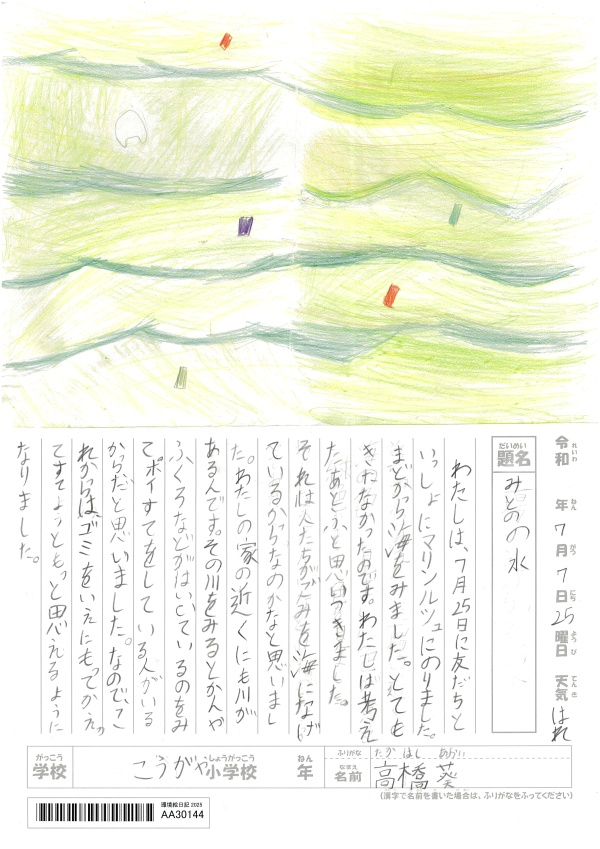 令和 年 7月 7日 25曜日 天気 はれ
れいわ ねん がつ にち ようび てんき
だいめい
題名
みどりの水
わたしは、7月25日に友だちと
いっしょにマリンルツュにのりました。
まどから海をみました。とても
きたなかったのです。わたしは考え
たあとふと思いつきました。
それは人たちがごみを海になげ
ているからなのかなと思いまし
た。わたしの家の近くにも川が
あるんです。その川をみるとかんや
ふくろなどがういているのをみ
てポイすてをしている人がいる
からだと思いました。なので、こ
れからは、ゴミをいえにもってかえっ
てすてようともっと思えるように
なりました。
がっこう
学校
こうがや小学校
しょうがっこう
ねん
年
ふりがな
たかはし あおい
なまえ
名前
高橋 葵
(漢字で名前を書いた場合は、ふりがなをふってください)
環境絵日記 2025
AA30144